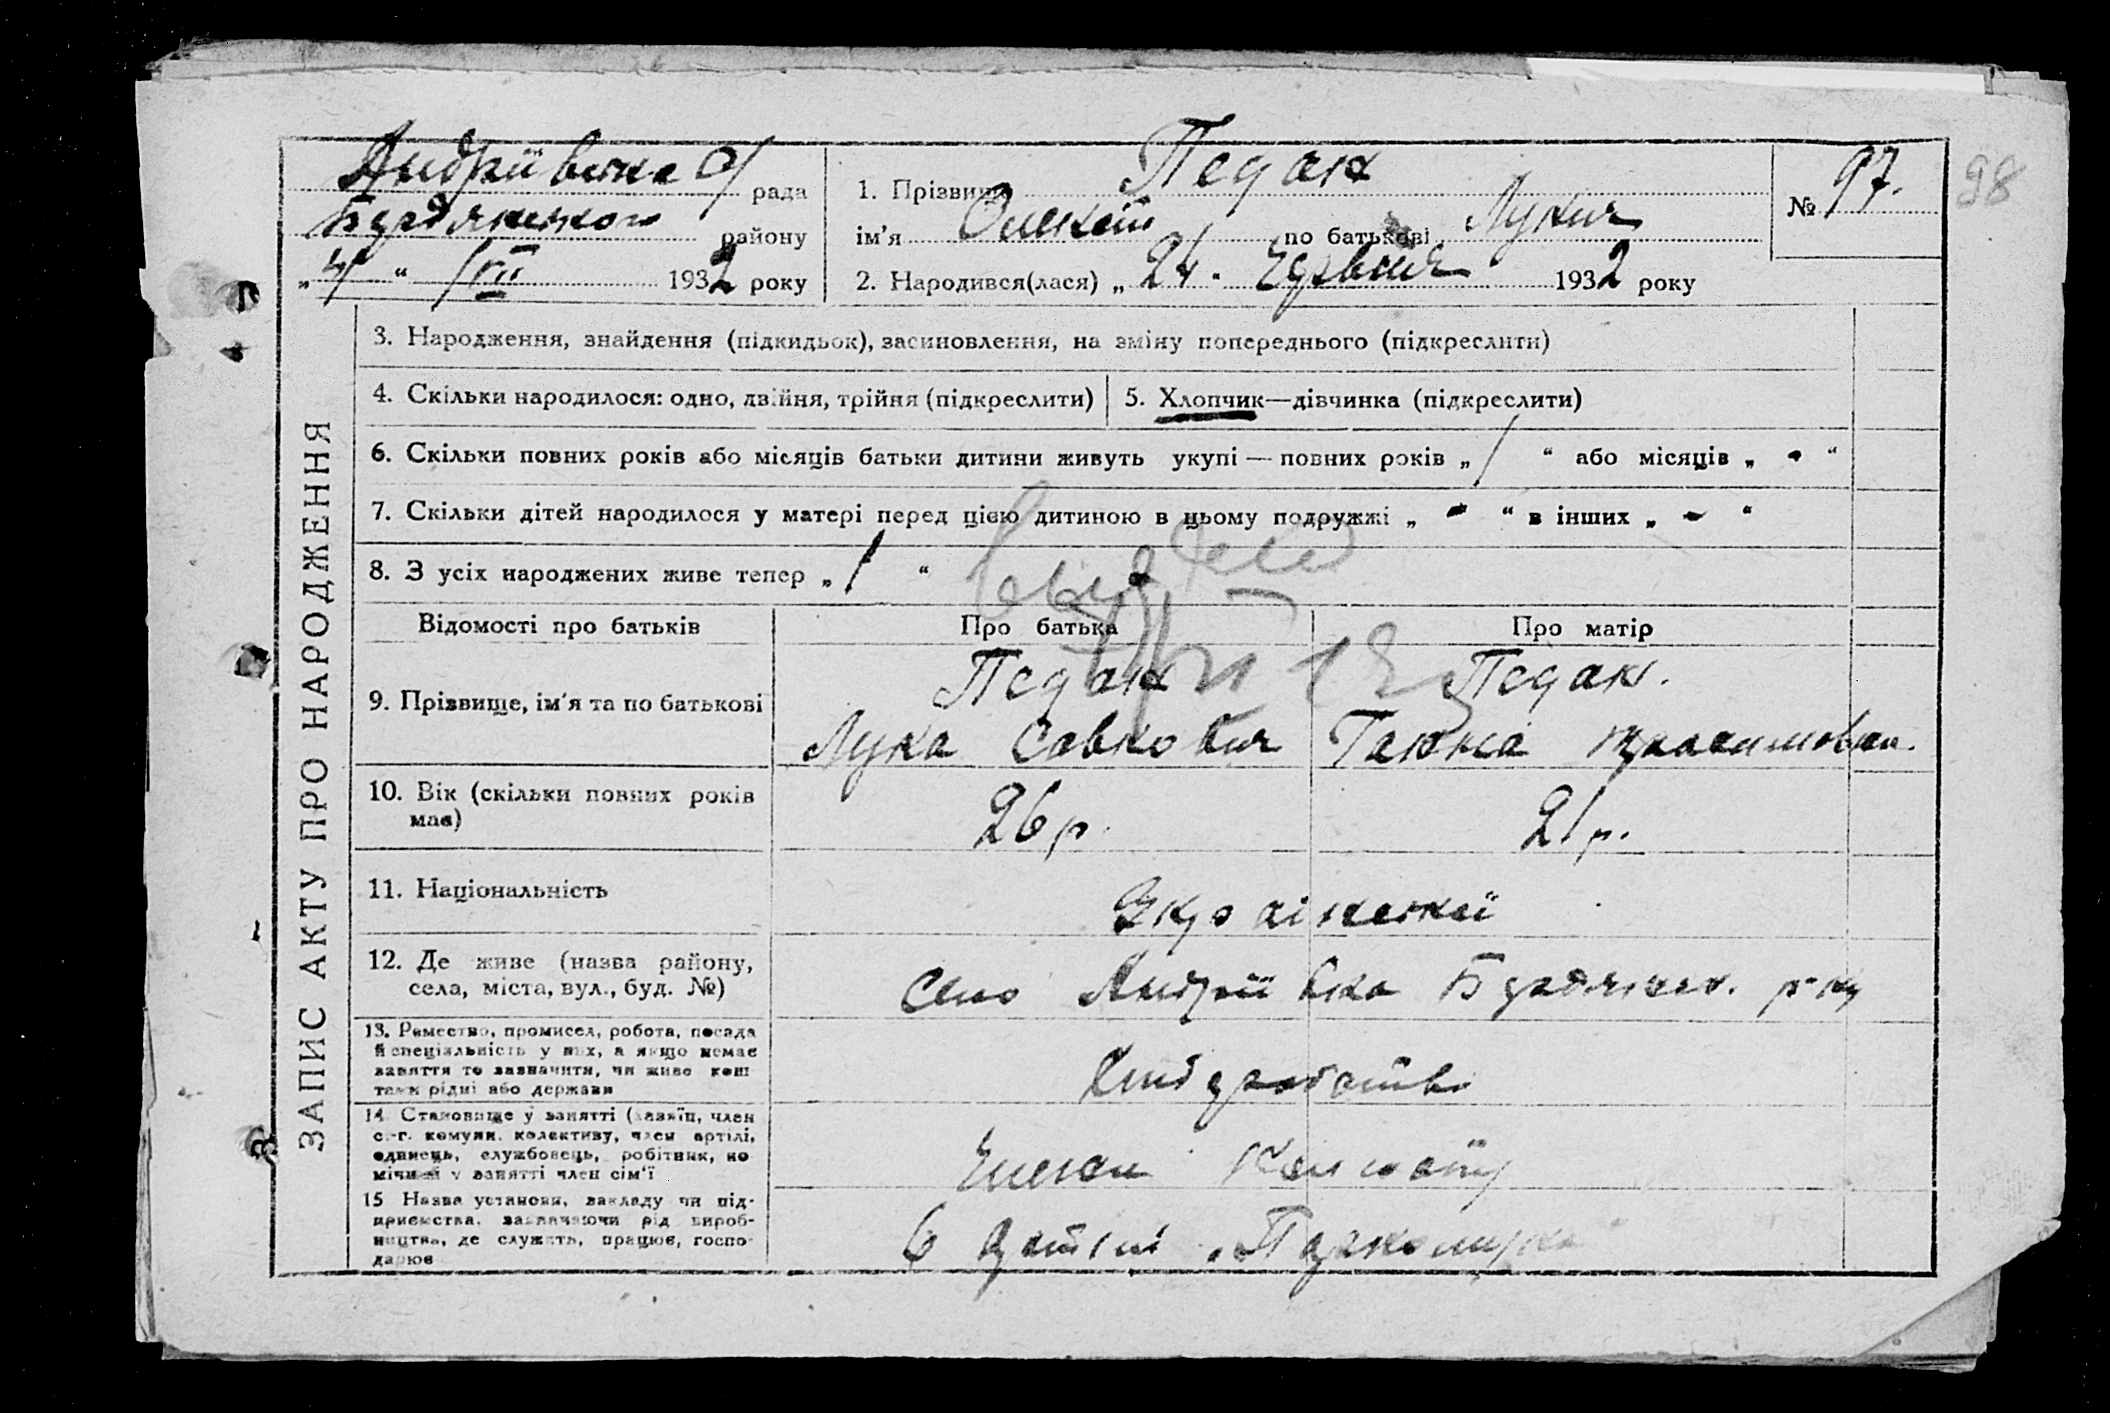 Андріївська С/ рада
Бердянського району
„4“ /VII 1932 року
1. Прізвище Педак
ім'я Олексій по батькові Лукич
№ 97.
98
2. Народився(лася) „24. Червня 1932 року
ЗАПИС АКТУ ПРО НАРОДЖЕННЯ
3. Народження, знайдення (підкидьок), засиновлення, на зміну попереднього (підкреслити)
4. Скільки народилося: одно, двійня, трійня (підкреслити) 5. Хлопчик—дівчинка (підкреслити)
6. Скільки повних років або місяців батьки дитини живуть укупі — повних років „ 1 “ або місяців „ - “
7. Скільки дітей народилося у матері перед цією дитиною в цьому подружжі „ - “ в інших „ - “
8. З усіх народжених живе тепер „ 1 “
Відомості про батьків Про батька Про матір
9. Прізвище, ім'я та по батькові
Педак Педак.
Лука Савкович Ганна
10. Вік (скільки повних років
має)
26 р. 21 р.
11. Національність
Українській
12. Де живе (назва району,
села, міста, вул., буд. №)
Село Андріївка Бердянськ. р-ну
13. Ремество, промисел, робота, посада
й спеціяльність у них, а якщо немає
заняття то зазначити, чи живе кош
тами рідні або держави
Хліборобство
14. Становище у занятті (хазяїн, член
с.-г. комуни, колективу, член артілі,
одинець, службовець, робітник, по
мічний у занятті член сім'ї
Член
15 Назва установи, закладу чи під-
приємства, зазначаючи рід вироб-
ництва, де служить, працює, госпо-
дарює
в артілі